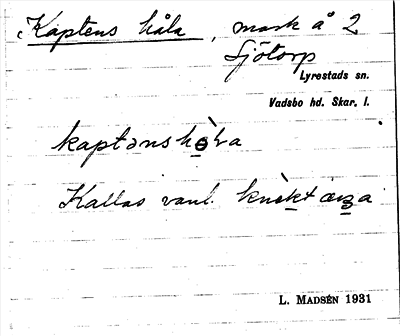 Kaptens håla, mark å 2
Sjötorp
Lyrestads sn.
Vadsbo hd. Skar. l.
kaptənshò̲la
Kallas vanl.
L. MADSÉN 1931